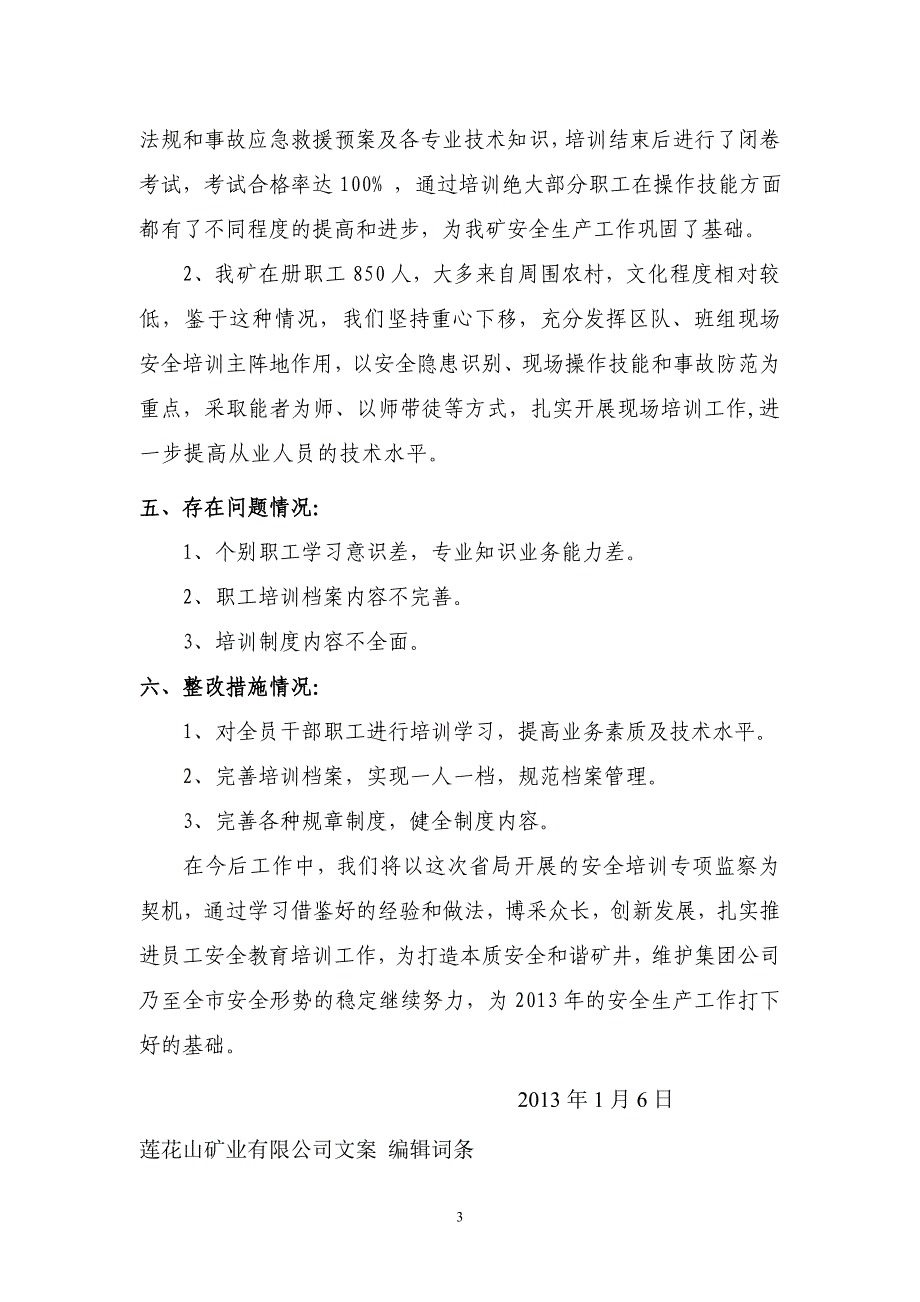 法规和事故应急救援预案及各专业技术知识，培训结束后进行了闭卷
考试，考试合格率达 100% ，通过培训绝大部分职工在操作技能方面
都有了不同程度的提高和进步，为我矿安全生产工作巩固了基础。
2、我矿在册职工 850 人，大多来自周围农村，文化程度相对较
低，鉴于这种情况，我们坚持重心下移，充分发挥区队、班组现场
安全培训主阵地作用，以安全隐患识别、现场操作技能和事故防范为
重点，采取能者为师、以师带徒等方式，扎实开展现场培训工作,进
一步提高从业人员的技术水平。
五、存在问题情况：
1、个别职工学习意识差，专业知识业务能力差。
2、职工培训档案内容不完善。
3、培训制度内容不全面。
六、整改措施情况：
1、对全员干部职工进行培训学习，提高业务素质及技术水平。
2、完善培训档案，实现一人一档，规范档案管理。
3、完善各种规章制度，健全制度内容。
在今后工作中，我们将以这次省局开展的安全培训专项监察为
契机，通过学习借鉴好的经验和做法，博采众长，创新发展，扎实推
进员工安全教育培训工作，为打造本质安全和谐矿井，维护集团公司
乃至全市安全形势的稳定继续努力，为 2013 年的安全生产工作打下
好的基础。
2013 年 1 月 6 日
莲花山矿业有限公司文案 编辑词条
3